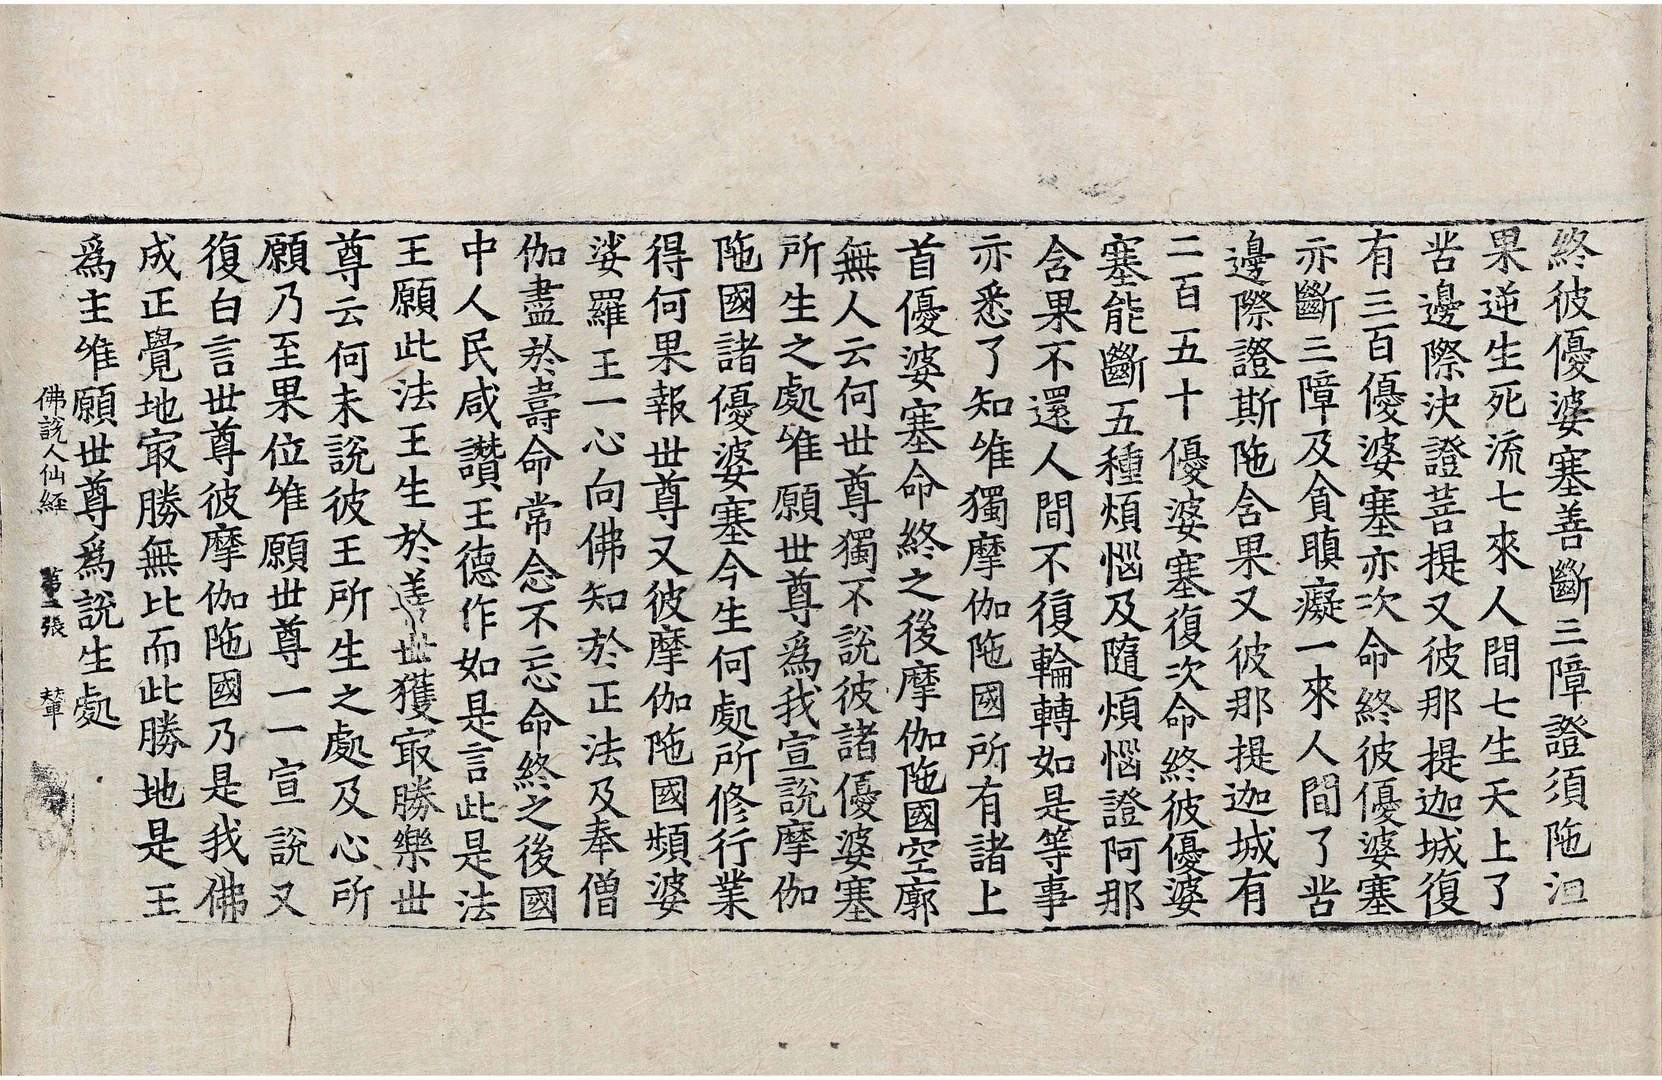 終彼優婆塞善斷三障證須陁洹
果逆生死流七來人間七生天上了
苦邊際決證菩提又彼那提迦城復
有三百優婆塞亦次命終彼優婆塞
亦斷三障及貪瞋癡一來人間了苦
邊際證斯陁含果又彼那提迦城有
二百五十優婆塞復次命終彼優婆
塞能斷五種煩惱及隨煩惱證阿那
含果不還人間不復輪轉如是等事
亦悉了知唯獨摩伽陁國所有諸上
首優婆塞命終之後摩伽陁國空廓
無人云何世尊獨不說彼諸優婆塞
所生之處唯願世尊爲我宣說摩伽
陁國諸優婆塞今生何處所修行業
得何果報世尊又彼摩伽陁國頻婆
娑羅王一心向佛知於正法及奉僧
伽盡於壽命常念不忘命終之後國
中人民咸讚王德作如是言此是法
王願此法王生於善世獲㝡勝樂世
尊云何未說彼王所生之處及心所
願乃至果位唯願世尊一一宣說又
復白言世尊彼摩伽陁國乃是我佛
成正覺地㝡勝無比而此勝地是王
爲主唯願世尊爲說生處
佛說人仙經 第二張 輦